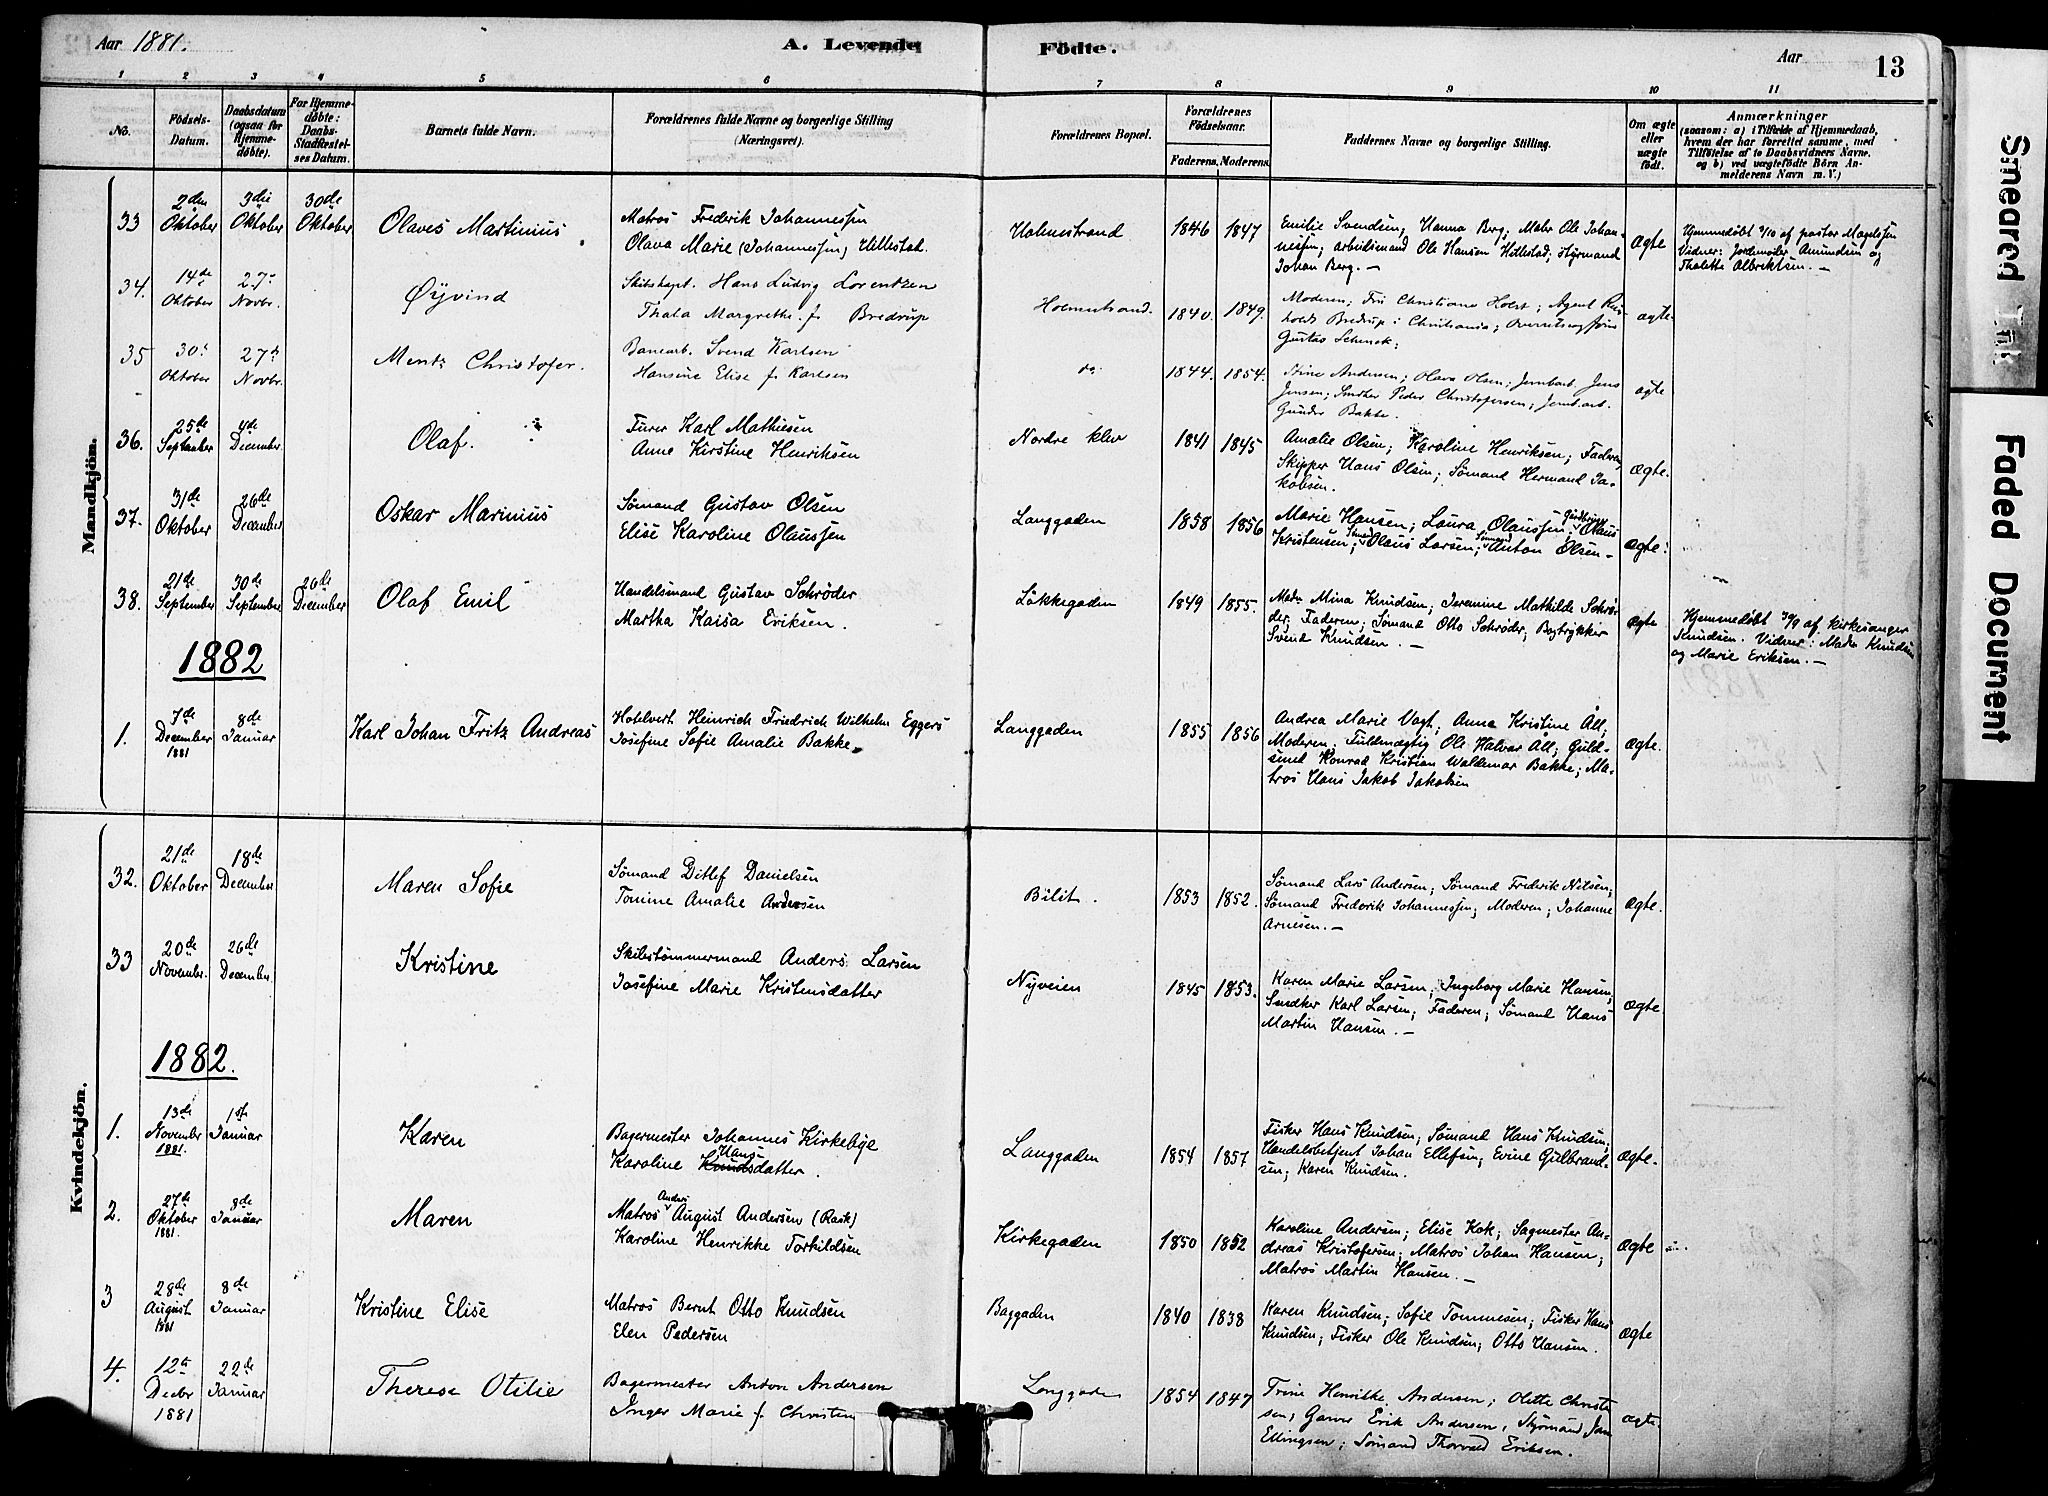 Aar 1881.
A. Levende Födte.
Aar
13
1 2 3 4 5 6 7 8 9 10 11
No.
Födsels-Datum.
Daabsdatum (ogsaa for Hjemme-döbte).
For Hjemme-döbte: Daabs-Stadfæstel-ses Datum.
Barnets fulde Navn.
Forældrenes fulde Navne og borgerlige Stilling (Næringsvei).
Forældrenes Bopæl.
Forældrenes Födselsaar.
Faderens. Moderens.
Faddernes Navne og borgerlige Stilling.
Om ægte eller uægte födt.
Anmærkninger
(saasom: a) i Tilfælde af Hjemmedaab, hvem der har forrettet samme, med Tilföielse af to Daabsvidners Navne, og b) ved uægtefödte Börn An-melderens Navn m. V.)
Mandkjön.
33 2den Oktober 3die Oktober 30de Oktober Olaves Martinius
Matros Frederik Johannessen
Olava Marie (Johannessen) Hillestad.
Holmestrand 1846 1847
Emilie Svendsen; Hanna Berg; Matr. Ole Johan-
nessen; arbeidsmand Ole Hansen Hillestad; Styrmand
Johan Berg. —
Ægte
Hjemmedøbt 3/10 af pastor Magelssen
Vidner: Jordemoder Amundsen og
Thalette Albrektsen. —
34. 14de Oktober 27. Novbr. Øyvind
Skibskapt. Hans Ludvig Lorentzen
Thala Margrethe f. Bredrup
Holmestrand. 1840. 1849.
Moderen; Fru Christiane Holst; Agent
Bredrup i Christiania;
Gustav Schenck;
ægte.
35 30. Oktober 27. Novbr. Mentz Christofer.
Banearb. Svend Karlsen
Hansine Elise f. Karlsen
do. 1844. 1854.
Nine Andersen; Olava Olsen; Jernbarb. Jens
Jensen; Snedker Peder Christofersen; Jernb.arb.
Gunder Bakke.
ægte
36. 25de September 4de December. Olaf.
Furer Karl Mathiesen
Anne Kirstine Henriksen
Nordre klev 1841 1845
Amalie Olsen; Karoline Henriksen; Faderen,
Skipper Hans Olsen; Sømand Hermand Ja-
kobsen.
Ægte.
37. 31de Oktober 26de December Oskar Marinius
Sømand Gustav Olsen
Elise Karoline Olaussen
Langgaden 1858 1856
Marie Hansen; Laura Olaussen; Gaardbruger Olaus
Kristensen; Sømand Olaus Larsen; Sømand Anton Olsen —
Ægte.
38. 21de September 30de September 26de December Olaf Emil
Handelsmand Gustav Schrøder
Martha Kaisa Eriksen.
Løkkegaden 1849 1855.
Mad. Mina Knudsen; Jeremine Mathilde Schrø-
der; Faderen; Sømand Otto Schrøder; Bogtrykker
Svend Knudsen. —
Ægte
Hjemmedøbt 30/9 af kirkesanger
Knudsen. Vidner: Mada Knudsen
og Marie Eriksen. —
1882
1. 7de December 1881 8de Januar Karl Johan Fritz Andreas
Hotelvert Heinrich Friedrich Wilhelm Eggers
Josefine Sofie Amalie Bakke.
Langgaden 1855 1856
Andrea Marie Vogt; Anna Kristine Åll;
Moderen; Fuldmægtig Ole Halvor Åll; Guld-
smed Konrad Kristian Waldemar Bakke; Ma-
tros Hans Jakob Jakobsen
Ægte.
Kvindekjön.
32. 21de Oktober 18de December Maren Sofie
Sømand Ditlef Danielsen
Tomine Amalie Andersen
Bilit. 1853 1852.
Sømand Lars Andersen; Sømand Frederik Nilsen;
Sømand Frederik Johannessen; Moderen; Johanne
Arnesen. —
Ægte.
33 20de November. 26de December Kristine
Skibstømmermand Anders Larsen
Josefine Marie Kristensdatter
Nyveien 1845 1853.
Karen Marie Larsen; Ingeborg Marie Hansen,
Snedker Karl Larsen; Faderen; Sømand Hans
Martin Hansen. —
Ægte.
1882.
1. 13de November 1881. 1ste Januar Karen
Bagermester Johannes Kirkebye
Karoline Knuds Hansdatter.
Langgaden 1854 1857
Fisker Hans Knudsen; Sømand Hans Knudsen;
Handelsbetjent Johan Ellefsen; Evine Gulbrand-
sen; Karen Knudsen.
Ægte.
2. 27de Oktober 1881. 8de Januar Maren
Matros Anders August Andersen (Rask)
Karoline Henrikke Torkildsen
Kirkegaden 1850 1852
Karoline Andersen; Elise Kok; Sagmester An-
dreas Kristofersen; Matros Johan Hansen;
Matros Martin Hansen. —
Ægte
3 28de August 1881 8de Januar Kristine Elise
Matros Bernt Otto Knudsen
Elen Pedersen
Baggaden 1840 1838
Karen Knudsen; Sofie Tommesen; Fisker Hans
Knudsen; Fisker Ole Knudsen; Otto Hansen.
Ægte
4. 12te Decbr 1881 22de Januar Therese Otilie
Bagermester Anton Andersen
Inger Marie f. Christen
Langgaden 1854 1847
Trine Henrikke Andersen; Olette Christen
sen; Garver Erik Andersen, Styrmand Jens
Ellingsen; Sømand Thorvald Eriksen.
ægte.
Smeared Ink
Faded Document